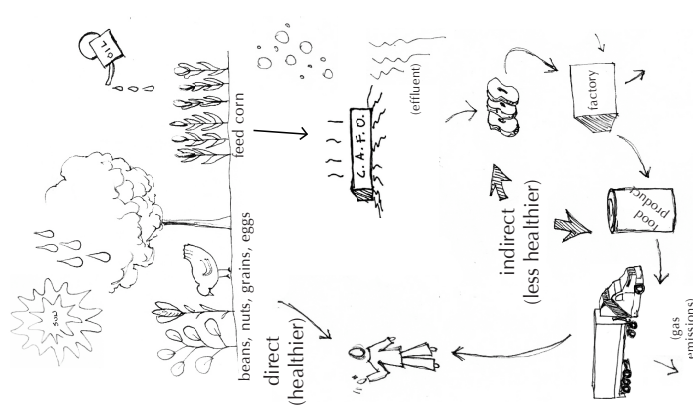 OIL
sun
feed corn
beans, nuts, grains, eggs
direct
(healthier)
C.A.F.O.
(effluent)
indirect
(less healthier)
factory
food
product
(gas
emissions)